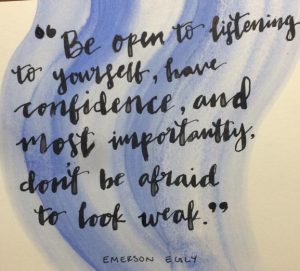 “Be open to listening
to yourself, have
confidence, and
most importantly,
don't be afraid
to look weak.”
EMERSON EGLY